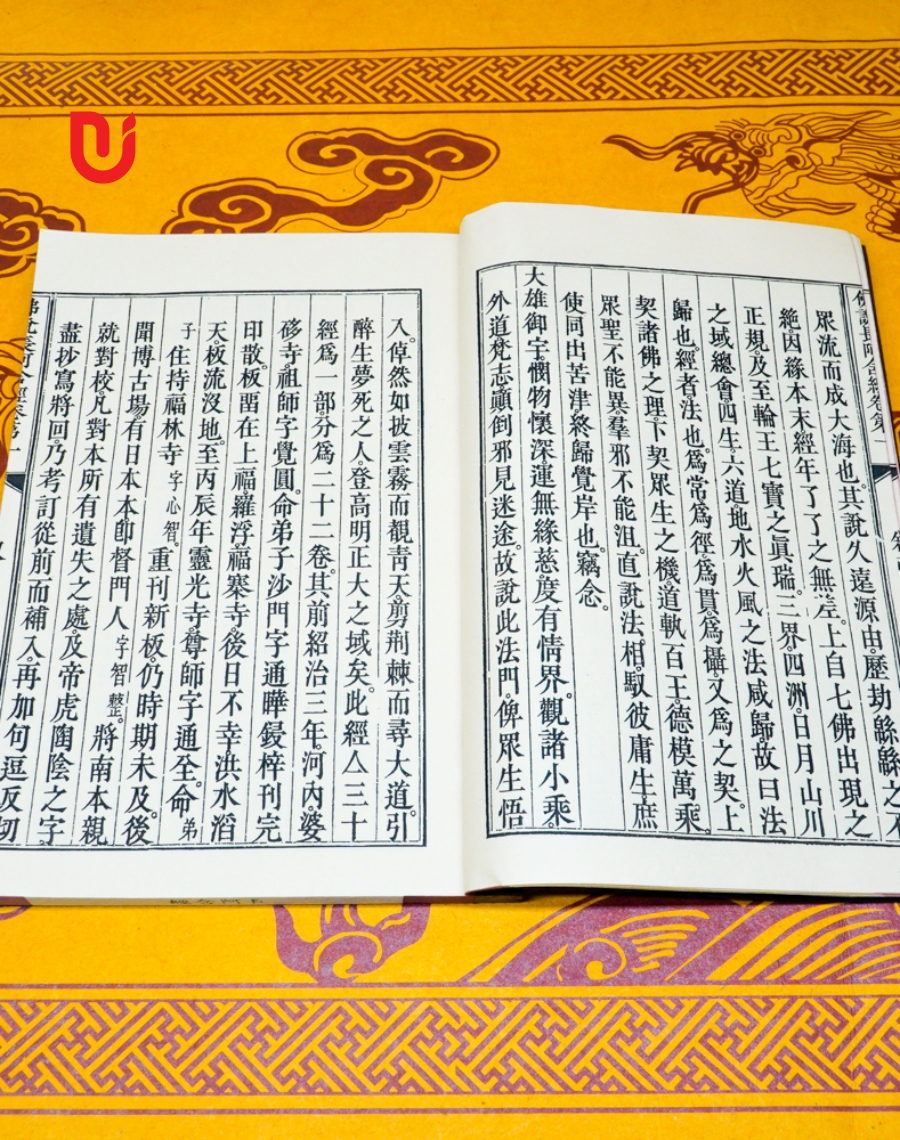 佛說長阿含經卷第一
眾流而成大海也。其說久遠源由。歷劫緜緜之不
絶。因緣本末。經年了了之無差。上自七佛出現之
正規。及至輪王七寶之眞瑞。三界四洲。日月山川
之域。總會四生。六道。地水火風之法咸歸。故曰法
歸也。經者法也。爲常爲徑。爲貫。爲攝。又爲之契。上
契諸佛之理。下契眾生之機。道軌百王。德模萬乘。
眾聖不能異。羣邪不能沮。直說法相。馭彼庸生。庶
使同出苦津。終歸覺岸也。竊念。
大雄御宇。憫物懷深。運無緣慈。度有情界。觀諸小乘。
外道梵志。顚倒邪見迷途。故說此法門。俾眾生悟
入。倬然如披雲霧而覩青天。剪荆棘而尋大道。引
醉生夢死之人。登高明正大之域矣。此經亼三十
經爲一部。分爲二十二卷。其前紹治三年。河內。婆
寺。祖師字覺圓。命弟子沙門字通曄鋟梓刊完
印散。板畱在上福。羅浮。福寨寺。後日不幸洪水滔
天。板流沒地。至丙辰年靈光寺。尊師字通全。命弟
子住持福林寺字心智。重刊新板。仍時期未及。後
聞博古場有日本本卽督門人字智整。將南本親
就對校。凡對本所有遺失之處。及帝虎陶陰之字
盡抄寫將回。乃考訂從前而補入。再加句逗反切